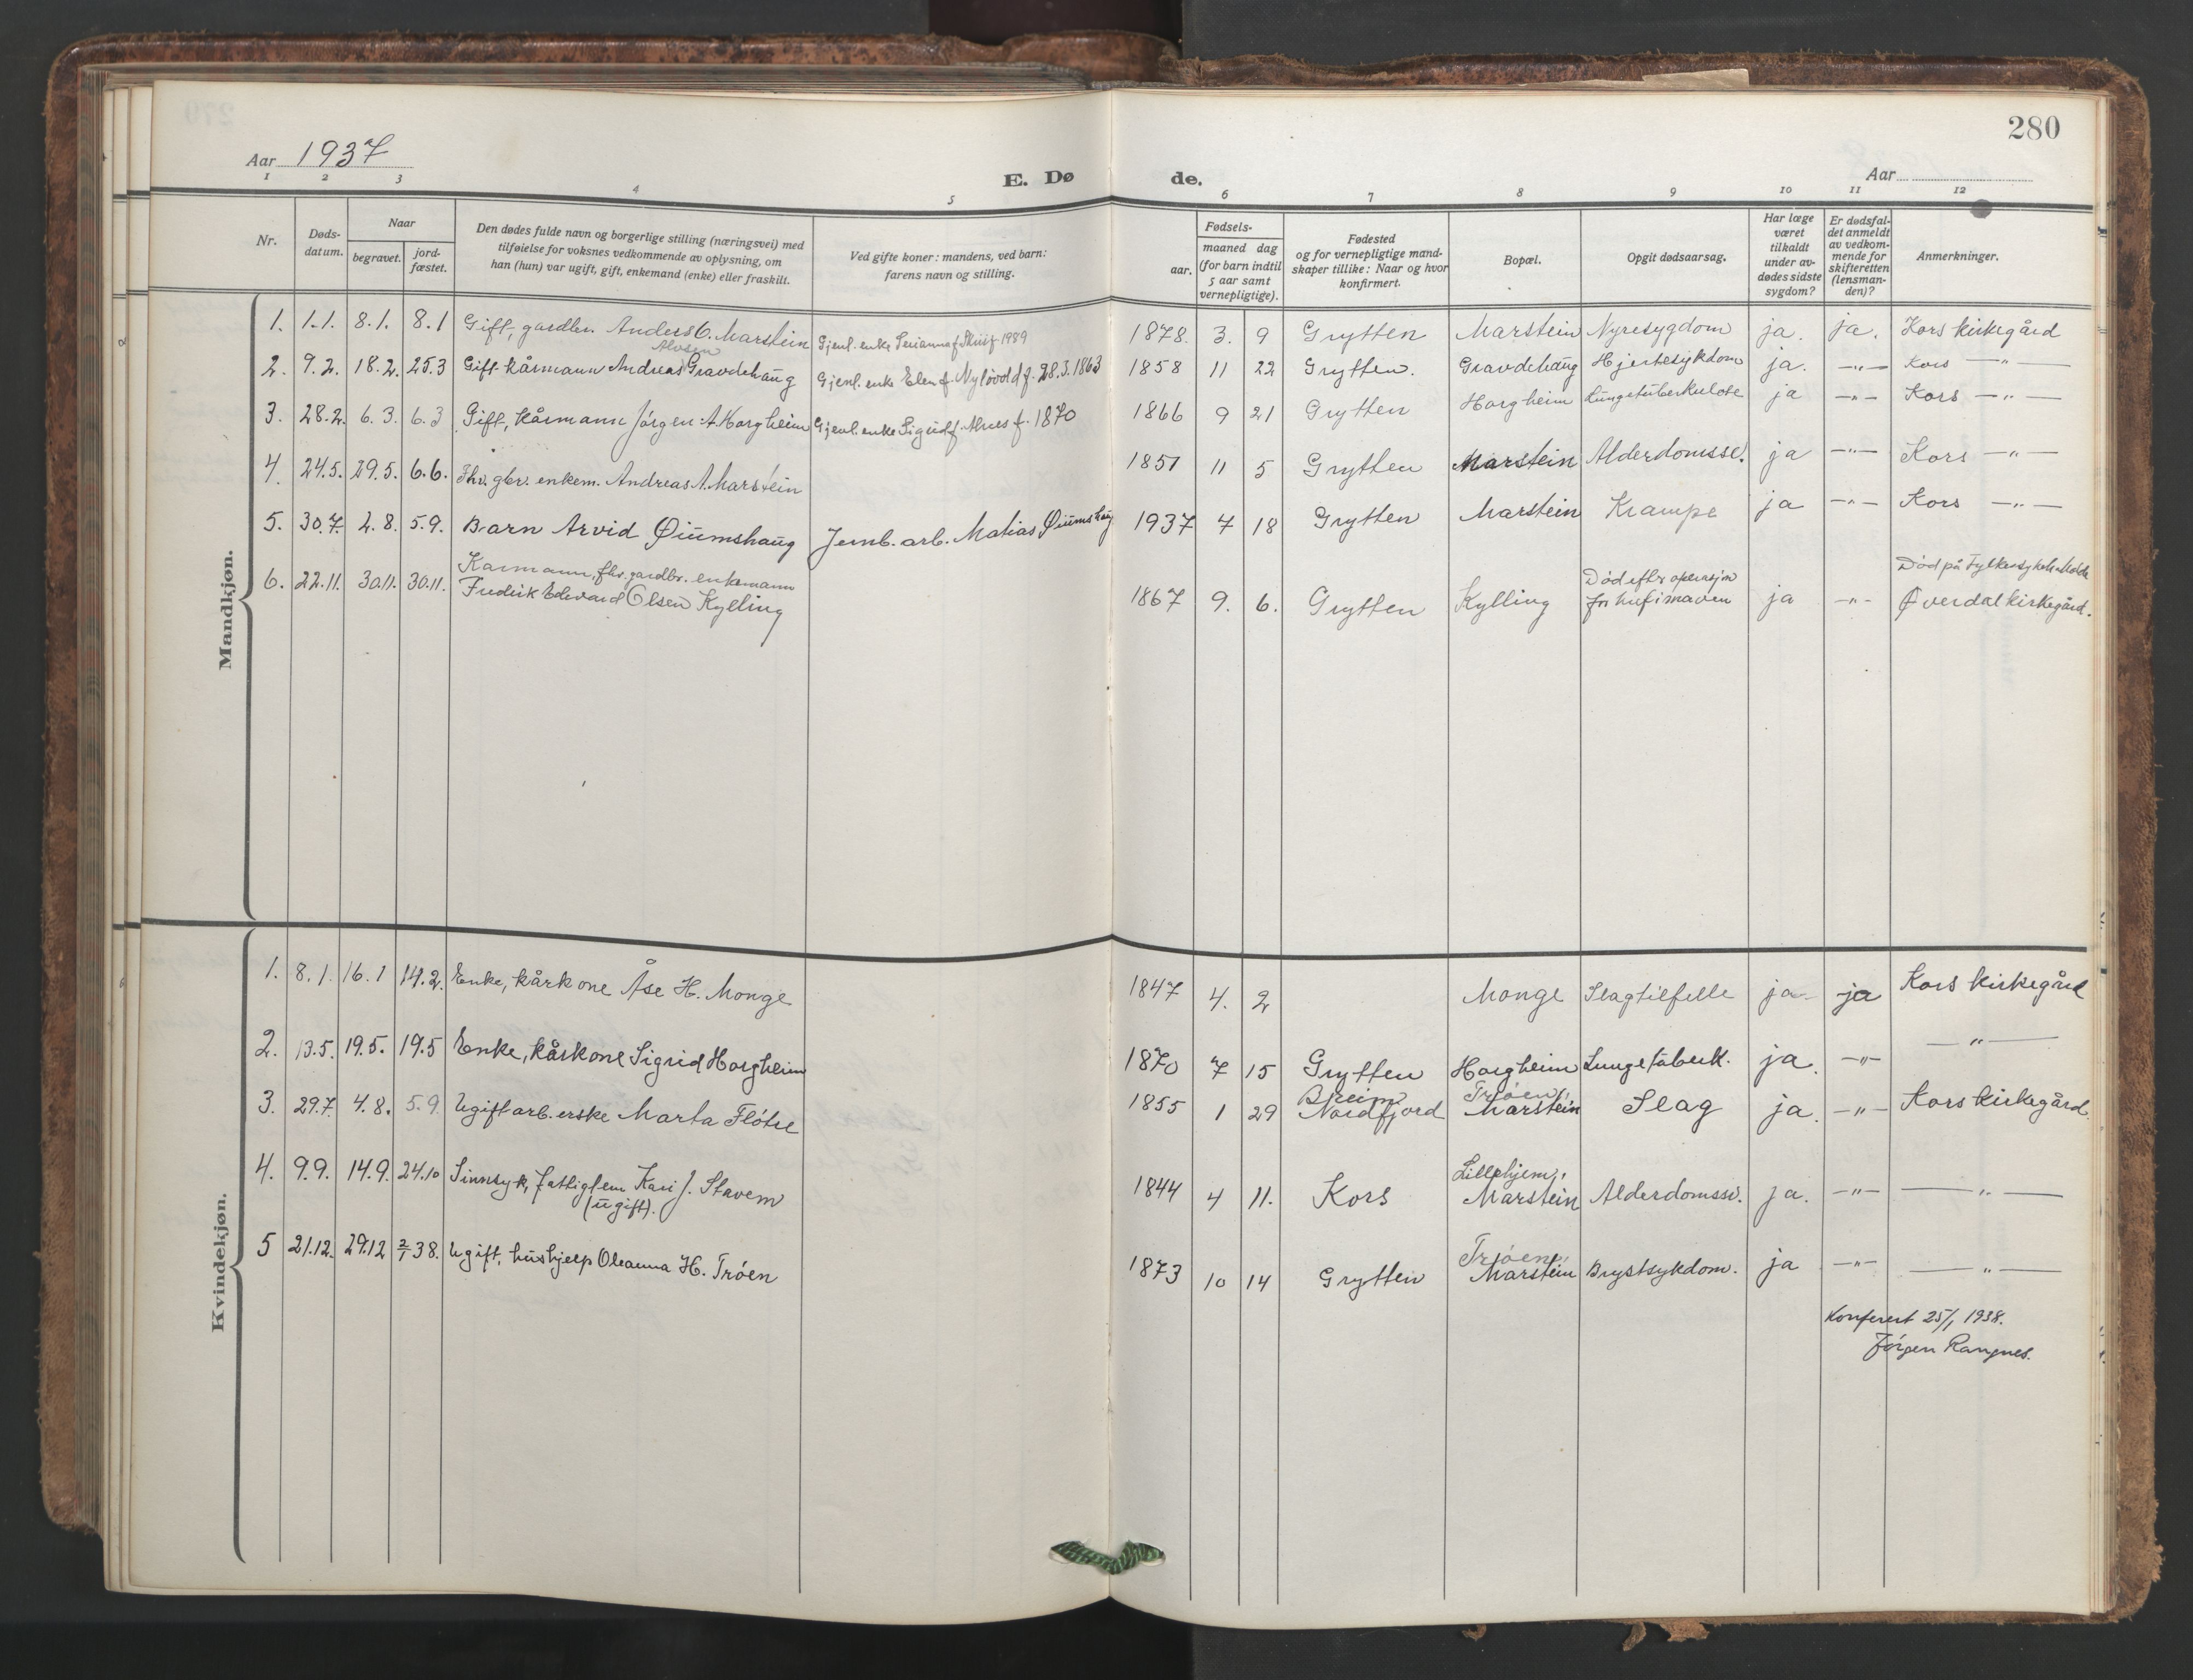 280
Aar 1937
E. Dø de.
Aar
1 2 3 4 5 6 7 8 9 10 11 12
Nr.
Døds-
datum.
Naar
begravet.
jord-
fæstet.
Den dødes fulde navn og borgerlige stilling (næringsvei) med
tilføielse for voksnes vedkommende av oplysning, om
han (hun) var ugift, gift, enkemand (enke) eller fraskilt.
Ved gifte koner: mandens, ved barn:
farens navn og stilling.
Fødsels-
aar.
maaned dag
(for barn indtil
5 aar samt
vernepligtige).
Fødested
og for vernepligtige mand-
skaper tillike: Naar og hvor
konfirmert.
Bopæl.
Opgit dødsaarsag.
Har læge
været
tilkaldt
under av-
dødes sidste
sygdom?
Er dødsfal-
det anmeldt
av vedkom-
mende for
skifteretten
(lensman-
den)?
Anmerkninger.
Mandkjøn.
1. 1.1. 8.1. 8.1 Gift, gardbr. Anders O. Marstein Gjenl. enke Serianna f. 1989 1878. 3. 9 Grytten Marstein Nyresygdom ja. ja. Kors kirkegård
Alvsen
2. 9.2. 18.2. 25.3 Gift kårmann Andreas Gravdehaug Gjenl. enke Elen f. Nyløvold f. 28.3.1863 1858 11 22 Grytten. Gravdehaug Hjertesykdom ja. —"— Kors —"—
3. 28.2. 6.3. 6.3 Gift, kårmann Jørgen A Horgheim Gjenl. enke Sigrid f. Alnes f. 1870 1866 9 21 Grytten Horgheim Lungetuberkulose ja —"— Kors —"—
4. 24.5. 29.5. 6.6. Fhv. gbr. enkem. Andreas A. Marstein 1851 11 5 Grytten Marstein Alderdomssv. ja —"— Kors —"—
5. 30.7. 2.8. 5.9. Barn Arvid Øiumshaug Jernb. arb. Matias Øiumshaug 1937 7 18 Grytten Marstein Krampe ja —"— Kors —"—
Karmann, fhv. gardbr. enkemann Død efter operasjon Død på Fylkessykeh. Molde
6. 22.11. 30.11. 30.11. Fredrik Edevard Olsen Kylling 1867 9. 6. Grytten Kylling for kreft i maven ja —"— Øverdal kirkegård.
Kvindekjøn.
1. 8.1. 16.1 14.2. Enke, kårkone Åse H. Monge 1847 4. 2 Monge Slagtilfelle ja ja Kors kirkegård
2. 13.5. 19.5. 19.5 Enke, kårkone Sigrid Horgheim 1870 7 15 Grytten Horgheim Lungetuberk. ja —"— —"—
Bjeim Trøen,
3. 29.7. 4.8. 5.9. Ugift arb.erske Marta Fløtre 1855 1 29 Nordfjord Marstein Slag ja. —"— Kors kirkegård.
Lillehjem,
4. 9.9. 14.9. 24.10 Sinnsyk, fattiglem Kari J. Stavem 1844 4 11. Kors Marstein Alderdomssv. ja. —"— —"—
(ugift).
Trøen,
5 21.12. 29.12 2/1 38. Ugift, hushjelp Oleanna H. Trøen 1873 10 14 Grytten Marstein Brystsykdom. ja —"— —"—
Konferert 25/1 1938.
Jørgen Rangnes.